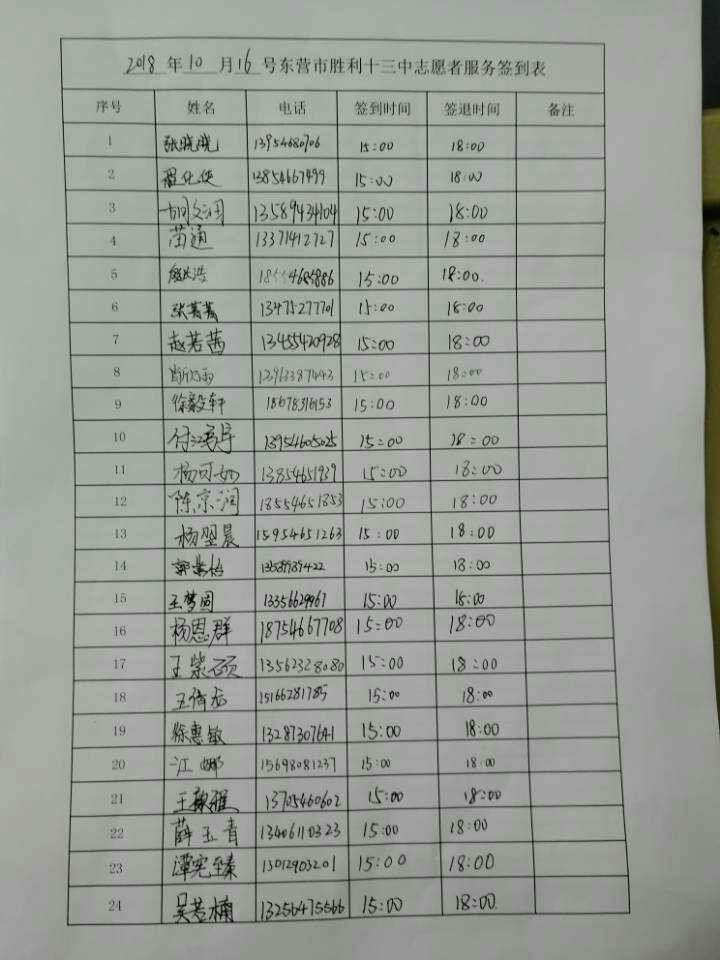 2018 年 10 月 16 号东营市胜利十三中志愿者服务签到表
序号 姓名 电话 签到时间 签退时间 备注
1 张晓晓 13954680706 15:00 18:00
2 翟化侠 13854667499 15:00 18:00
3 胡文润 13589434104 15:00 18:00
4 苗通 13371412727 15:00 18:00
5 15:00 18:00
6 张菁菁 13475277701 15:00 18:00
7 赵若茜 13455420928 15:00 18:00
8 15:00 18:00
9 徐毅轩 18678316153 15:00 18:00
10 13954605025 15:00 18:00
11 杨可如 13854651939 15:00 18:00
12 陈京润 18554651853 15:00 18:00
13 杨堃晨 15954651263 15:00 18:00
14 13589989422 15:00 18:00
15 王梦圆 13356629967 15:00 18:00
16 杨恩群 18754667708 15:00 18:00
17 王紫硕 13562328080 15:00 18:00
18 15166281785 15:00 18:00
19 徐惠敏 13287307641 15:00 18:00
20 江娜 15698081237 15:00 18:00
21 王歆雅 13705460602 15:00 18:00
22 薛玉青 13406110323 15:00 18:00
23 谭宪臻 15012903201 15:00 18:00
24 吴若楠 13256475566 15:00 18:00